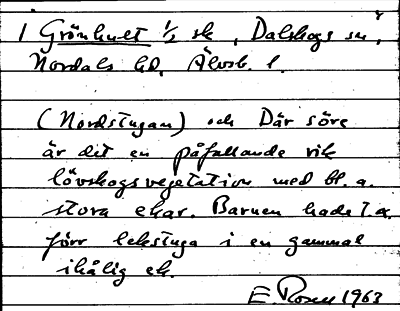 1 Grönhult 1/2 sk, Dalskogs sn,
Nordals hd, Älvsb. l.
(Nordstugan) och Där söre
är det en påfallande rik
lövskogsvegetation med bl. a.
stora ekar. Barnen hade t.o.
förr lekstuga i en gammal
ihålig ek.
E. Rosen 1963